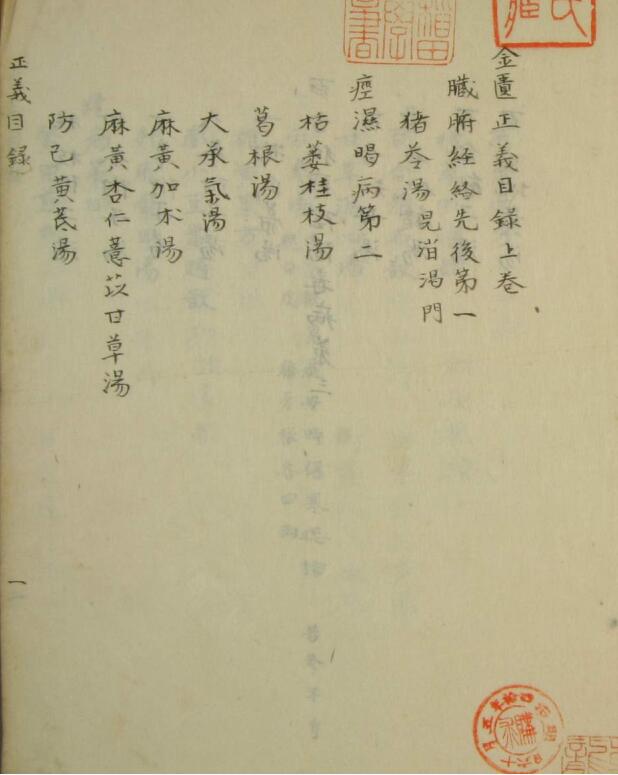 金匱正義目録上卷
臟腑経絡先後第一
猪苓湯 見消渇門
痙濕暍病第二
栝蔞桂枝湯
葛根湯
大承氣湯
麻黃加朮湯
麻黃杏仁薏苡甘草湯
防已黃芪湯
正義目録
一